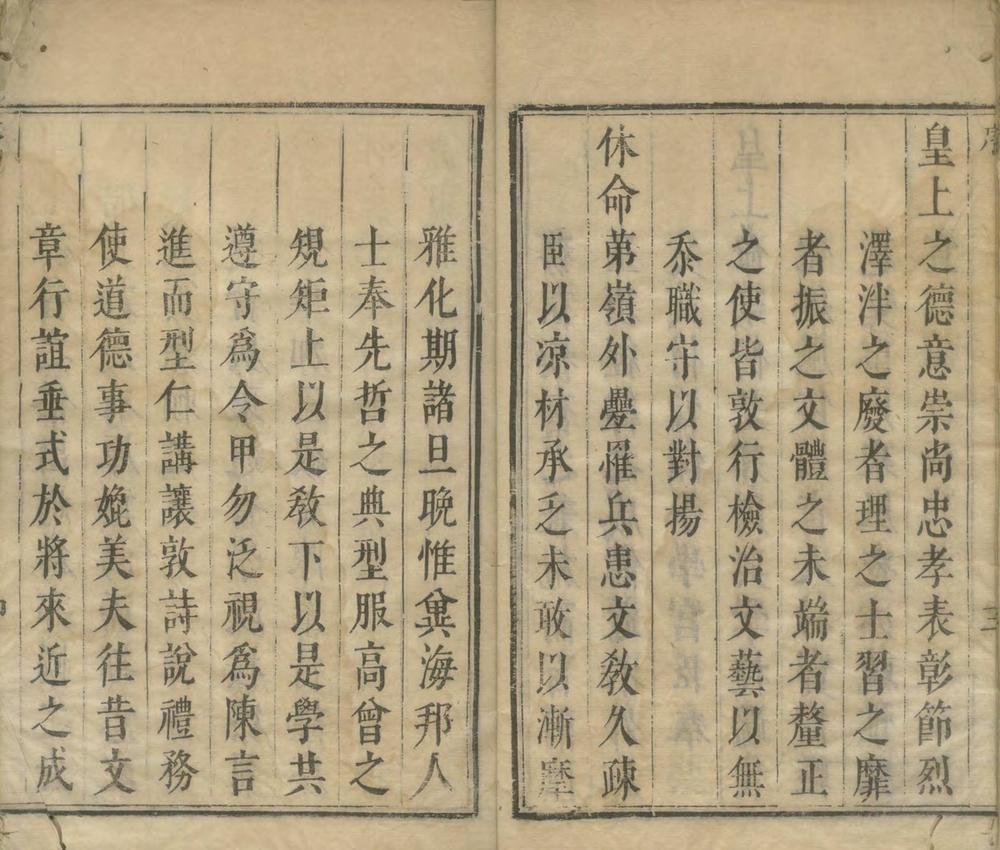 皇上之德意崇尚忠孝表彰節烈
澤泮之廢者理之士習之靡
者振之文體之未端者釐正
之使皆敦行檢治文藝以無
忝職守以對揚
休命第嶺外疊罹兵患文敎久疎
臣以凉材承乏未敢以漸摩
雅化期諸旦晩惟兾海邦人
士奉先哲之典型服高曾之
䂓矩上以是敎下以是學共
遵守爲令甲勿泛視爲陳言
進而型仁講讓敦詩說禮務
使道德事功媲美夫往昔文
章行誼垂式於將來近之成